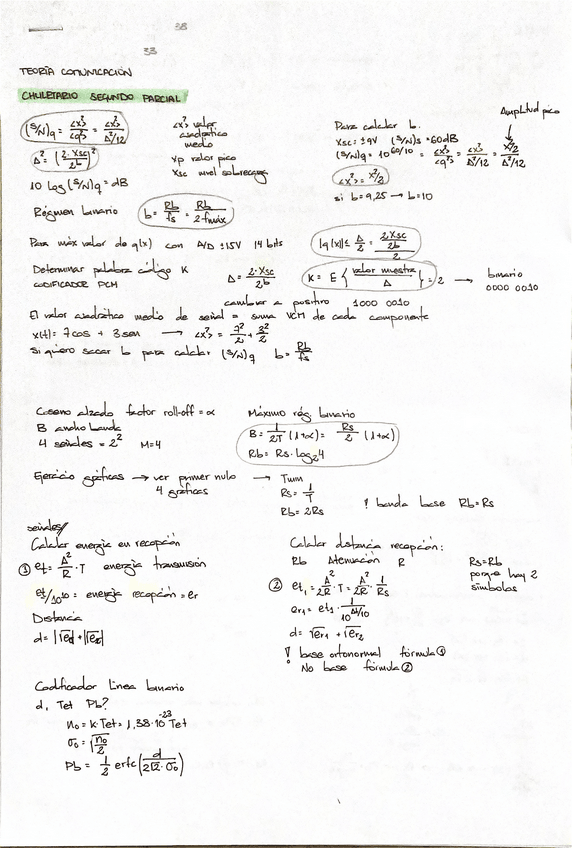 38
33
TEORÍA COMUNICACIÓN
CHULETARIO SEGUNDO PARCIAL
(S/N)q = <x²>/<q²> = <x²>/(Δ²/12)
Δ² = (2·Xsc/2^b)²
10 log (S/N)q = dB
<x²> valor cuadrático medio
xp valor pico
Xsc nivel sobrecarga
Régimen binario b = Rb/fs = Rb/(2·fmáx)
Para calcular b.
Xsc = ±9V (S/N)s = 60dB
Amplitud pico
(S/N)q = 10^(60/10) = <x²>/<q²> = <x²>/(Δ²/12) = (x²/2)/(Δ²/12)
<x²> = x²/2
si b = 9,25 → b = 10
Para máx valor de q(x) con A/D ±15V 14 bits |q(x)| ≤ Δ/2 = (2·Xsc/2^b)/2
Determinar palabra código K
CODIFICADOR PCM
Δ = 2·Xsc/2^b
K = E { valor muestra/Δ } = 2 → binario
0000 0010
cambiar a positivo 1000 0010
El valor cuadrático medio de señal = suma VCM de cada componente
x(t) = 7cos + 3sen → <x²> = 7²/2 + 3²/2
Si quiero sacar b para calcular (S/N)q b = Rb/fs
Coseno alzado factor roll-off = α
B ancho banda
4 señales = 2² M=4
Máximo rég. binario
B = 1/2T (1+α) = Rs/2 (1+α)
Rb = Rs·log₂4
Ejercicio gráficas → ver primer nulo → Tum
4 gráficas
Rs = 1/T
Rb = 2Rs
! banda base Rb = Rs
señales/
Calcular energía en recepción
① et = A²/R · T energía transmisión
et/10^10 = energía recepción = er
Distancia
d = |√e1| + |√e2|
Calcular distancia recepción:
Rb Atenuación R
② et1 = A²/2R · T = A²/2R · 1/Rs
er1 = et1 · 1/10^(At/10)
d = √er1 + √er2
Rs = Rb
porque hay 2
símbolos
! base ortonormal fórmula ①
No base fórmula ②
Codificador Linea binario
d, Tet Pb?
n₀ = k·Tet = 1,38·10⁻²³ Tet
σ₀ = √(n₀/2)
Pb = 1/2 erfc(d/(2√2·σ₀))